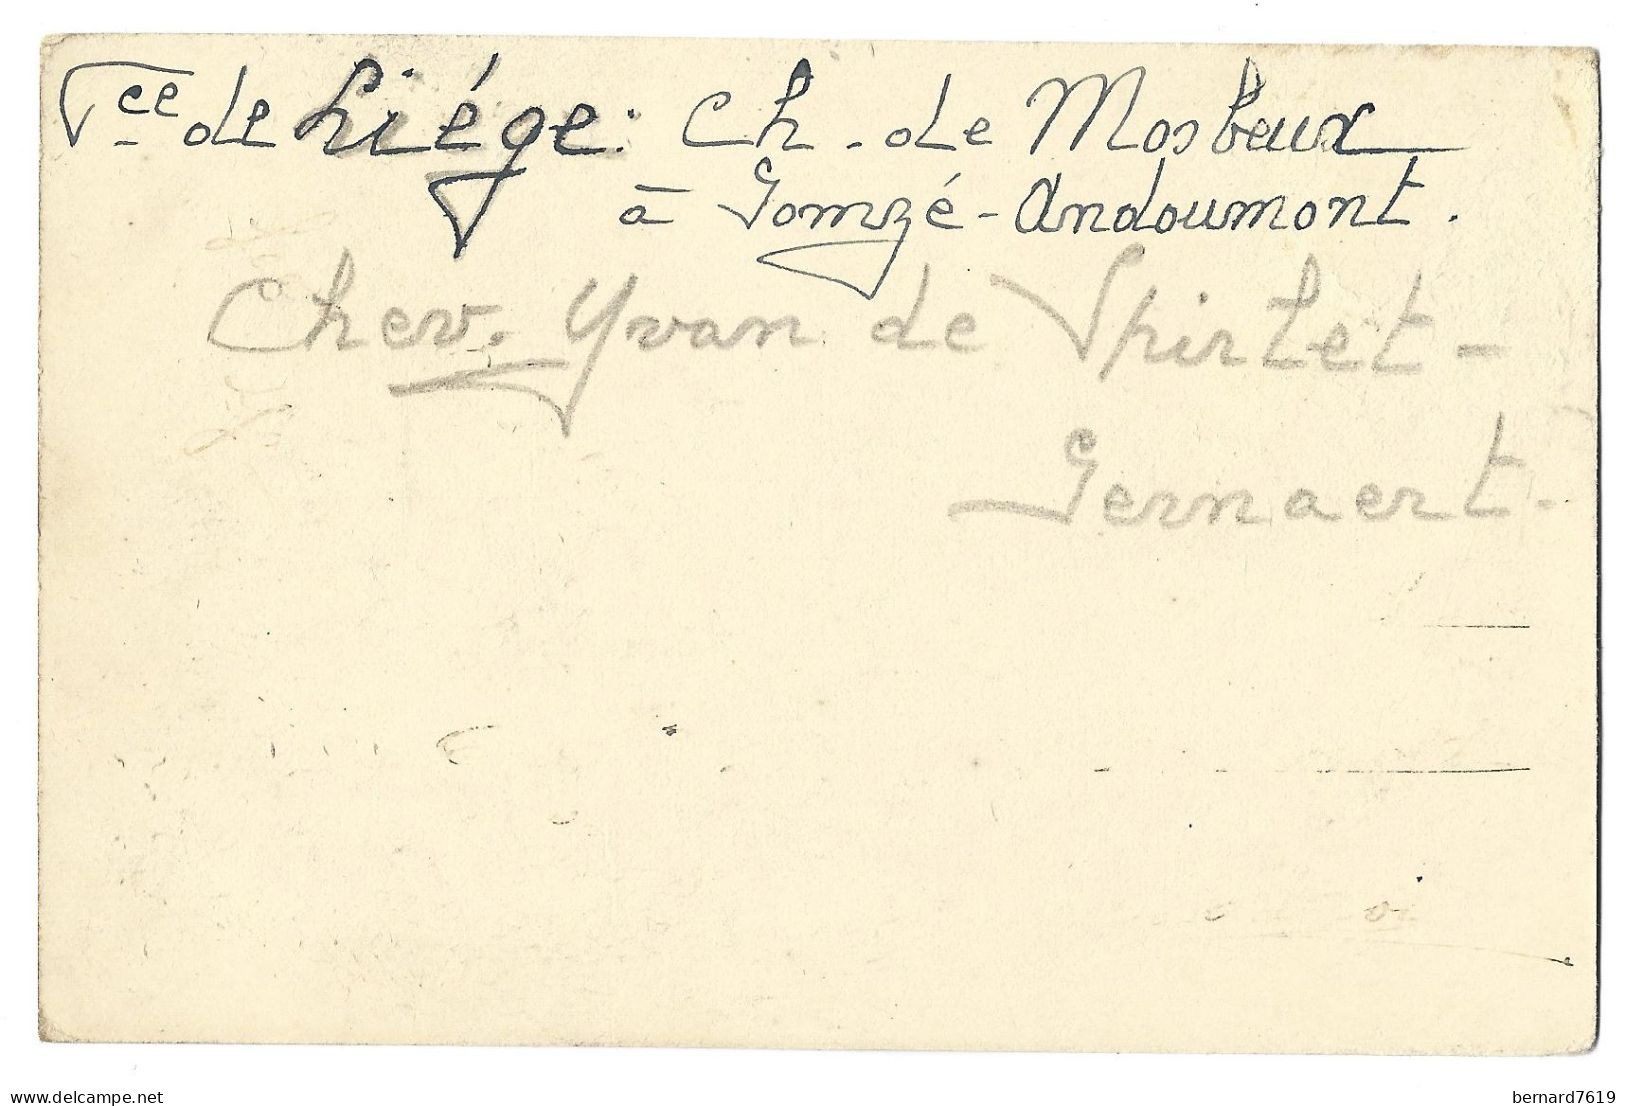 Vce de Liége: Ch. de Mosbeux
à Gomzé-Andoumont.
Chev. Yvan de Spirlet-
Gernaert.
delcampe.net
bernard7619